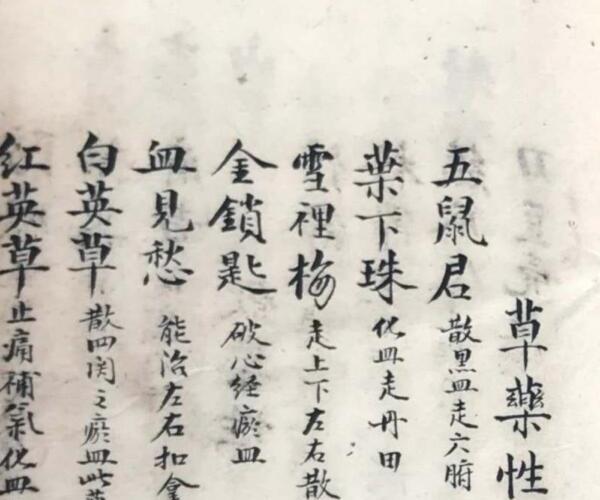 草藥性
五鼠君 散黑血走六腑
葉下珠 化血走丹田
雪裡梅 走上下左右散
金鎖匙 破心經瘀血
血見愁 能治左右扣
白英草 散四関之瘀血此
红英草 止痛補氣化血